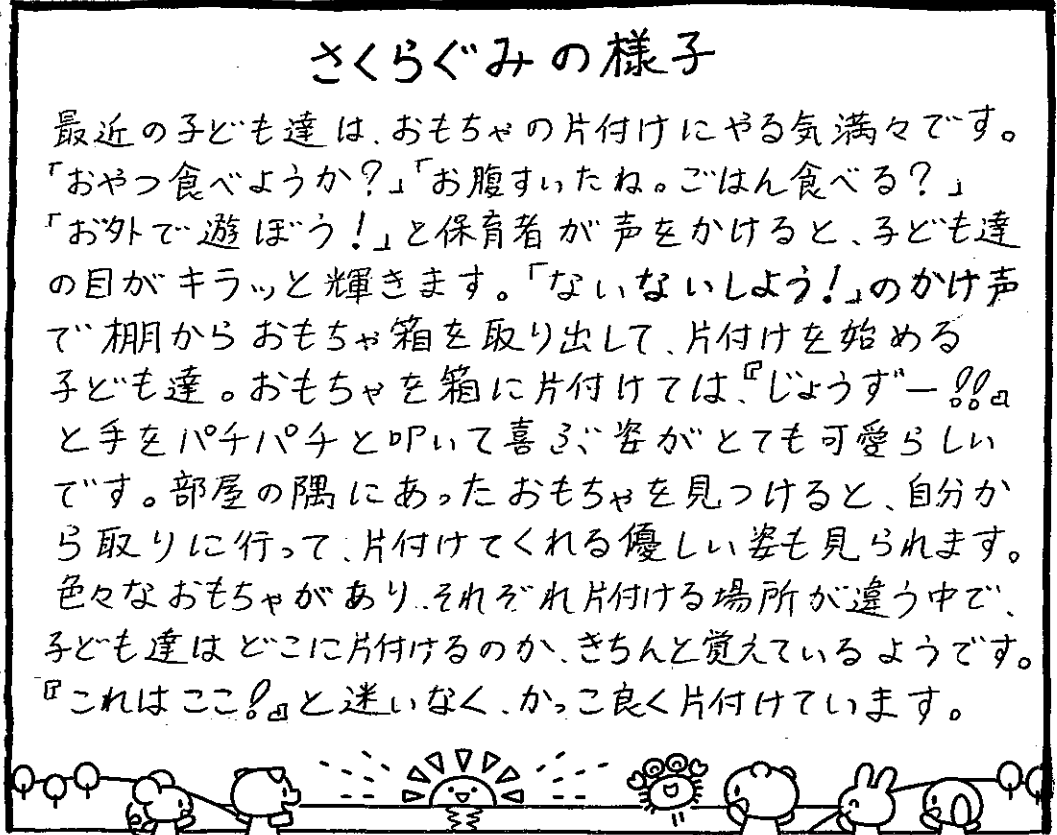 さくらぐみの様子
最近の子ども達は、おもちゃの片付けにやる気満々です。
「おやつ食べようか？」「お腹すいたね。ごはん食べる？」
「お外で遊ぼう！」と保育者が声をかけると、子ども達
の目がキラッと輝きます。「ないないしよう！」のかけ声
で棚からおもちゃ箱を取り出して、片付けを始める
子ども達。おもちゃを箱に片付けては、『じょうずー!!』
と手をパチパチと叩いて喜ぶ姿がとても可愛らしい
です。部屋の隅にあったおもちゃを見つけると、自分か
ら取りに行って、片付けてくれる優しい姿も見られます。
色々なおもちゃがあり、それぞれ片付ける場所が違う中で、
子ども達はどこに片付けるのか、きちんと覚えているようです。
『これはここ!』と迷いなく、かっこ良く片付けています。